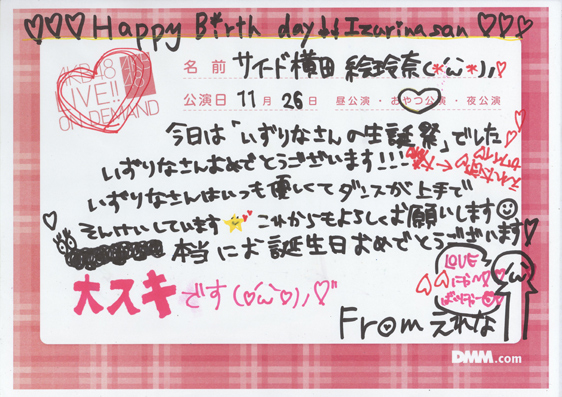 ♡♡♡ Happy Birth day!! Izurinasan ♡♡♡
AKB48
LIVE!!
ON DEMAND
名前 サイード横田 絵玲奈(*'ω'*)ノ
公演日 11月26日 昼公演・おやつ公演・夜公演
今日は「いずりなさんの生誕祭」でした
いずりなさんおめでとうございます!!!
いずりなさんはいつも優しくてダンスが上手で
そんけいしています これからもよろしくお願いします
本当にお誕生日おめでとうございます
LOVE
大スキです(♡'ω'♡)ノ
From えれな
DMM.com